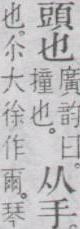 頭也廣韵曰从手
撞也
也尒大徐作爾琴